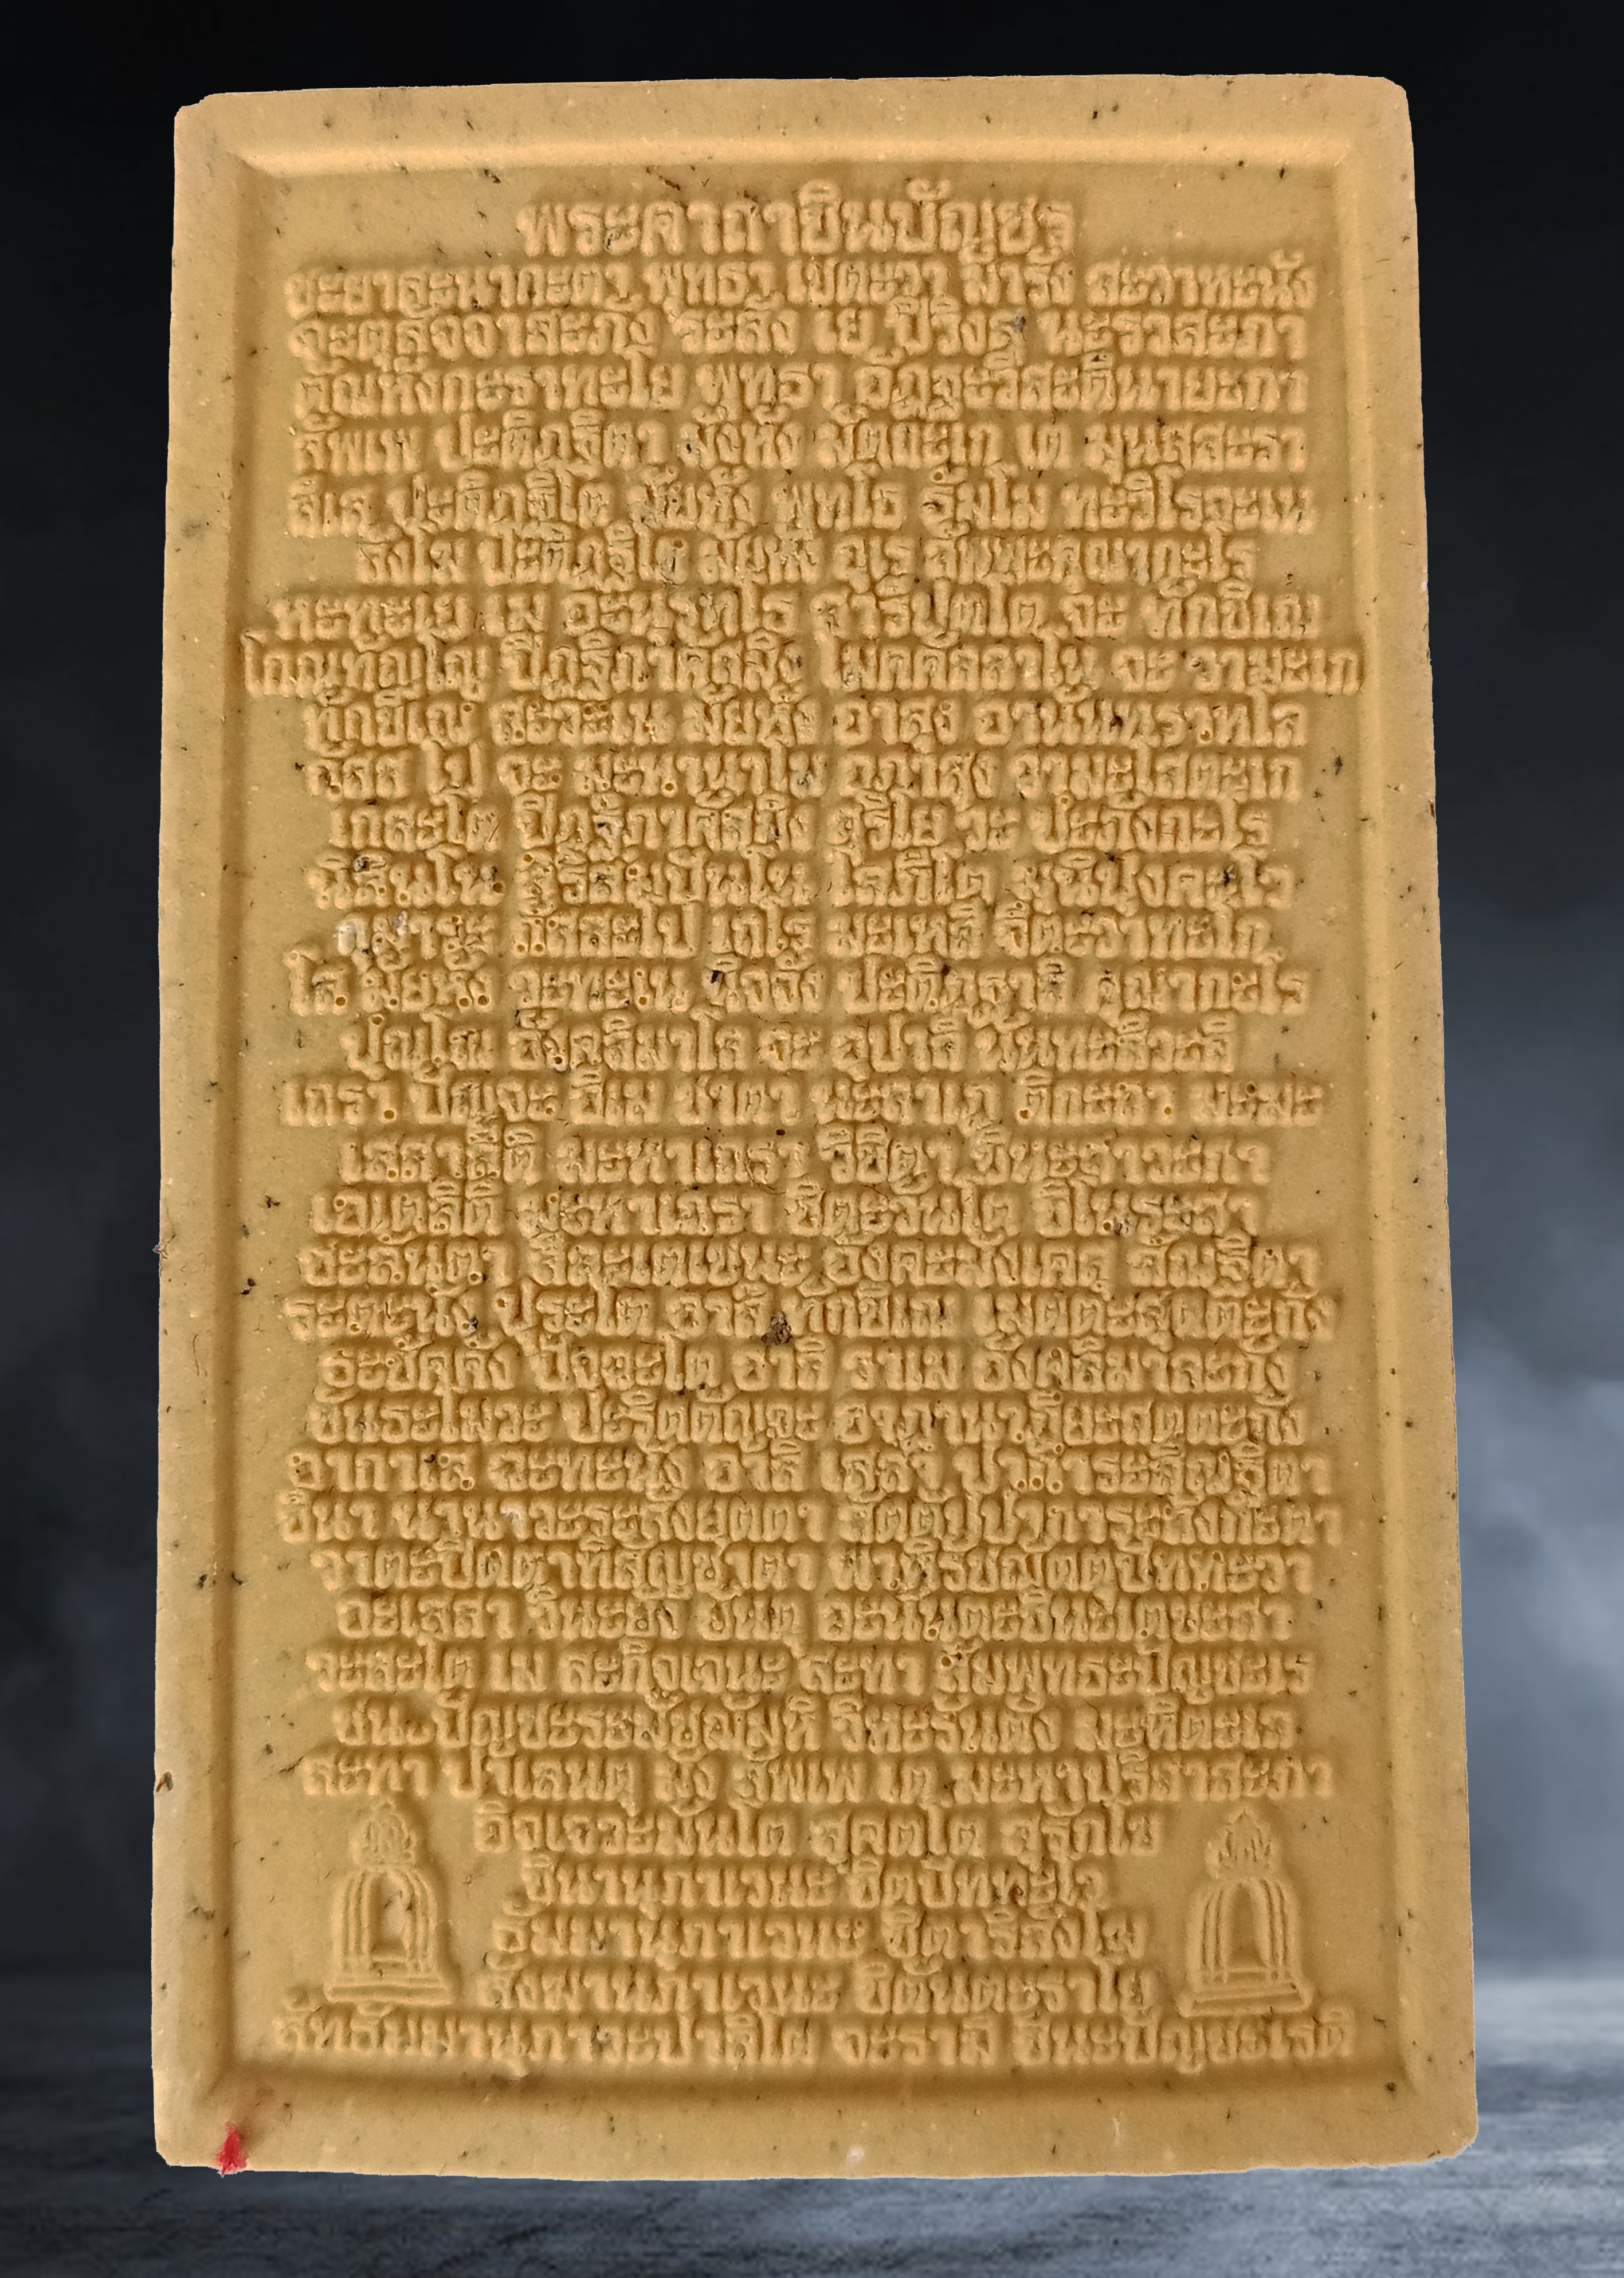 พระคาถาชินบัญชร
ชะยาสะนากะตา พุทธา เชตะวา มารัง สะวาหะนัง
จะตุสัจจาสะภัง ระสัง เย ปิวิงสุ นะราสะภา
ตัณหังกะราทะโย พุทธา อัฏฐะวีสะตินายะกา
สัพเพ ปะติฏฐิตา มัยหัง มัตถะเก เต มุนิสสะรา
สีเส ปะติฏฐิโต มัยหัง พุทโธ ธัมโม ทะวิโรจะเน
สังโฆ ปะติฏฐิโต มัยหัง อุเร สัพพะคุณากะโร
หะทะเย เม อะนุรุทโธ สารีปุตโต จะ ทักขิเณ
โกณฑัญโญ ปิฏฐิภาคัสสมิง โมคคัลลาโน จะ วามะเก
ทักขิเณ สะวะเน มัยหัง อาสุง อานันทราหุโล
กัสสะโป จะ มะหานาโม อุภาสุง วามะโสตะเก
เกสะโต ปิฏฐิภาคัสสมิง สุริโย วะ ปะภังกะโร
นิสินโน สิริสัมปันโน โสภีโต มุนิปุงคะโว
กุมาระ กัสสะโป เถโร มะเหสี จิตตะวาทะโก
โส มัยหัง วะทะเน นิจจัง ปะติฏฐาสิ คุณากะโร
ปุณโณ อังคุลิมาโล จะ อุปาลี นันทะสีวะลี
เถรา ปัญจะ อิเม ชาตา นะลาเต ติกะลา มะมะ
เสสาสีติ มะหาเถรา วิชิตา ชินะสาวะกา
เอเตสีติ มะหาเถรา ชิตะวันโต ชิโนระสา
ชะลันตา สีละเตเชนะ อังคะมังเคสุ สัณฐิตา
ระตะนัง ปุระโต อาสิ ทักขิเณ เมตตะสุตตะกัง
ธะชัคคัง ปัจฉะโต อาสิ วาเม อังคุลิมาละกัง
ขันธะโมระ ปะริตตัญจะ อาฏานาฏิยะสุตตะกัง
อากาเส ฉะทะนัง อาสิ เสสา ปาการะสัณฐิตา
ชินา นานาวะระสังยุตตา สัตตัปปาการะลังกะตา
วาตะปิตตาทิสัญชาตา พาหิรัชฌัตตุปัททะวา
อะเสสา วินะยัง ยันตุ อะนันตะชินะเตชะสา
วะสะโต เม สะกิจเจนะ สะทา สัมพุทธะปัญชะเร
ชินะปัญชะระมัชฌัมหิ วิหะรันตัง มะหีตะเล
สะทา ปาเลนตุ มัง สัพเพ เต มะหาปุริสาสะภา
อิจเจวะมันโต สุคุตโต สุรักโข
ชินานุภาเวนะ ชิตุปัททะโว
ธัมมานุภาเวนะ ชิตาริสังโฆ
สังฆานุภาเวนะ ชิตันตะราโย
สัทธัมมานุภาวะปาลิโต จะรามิ ชินะปัญชะเรติ